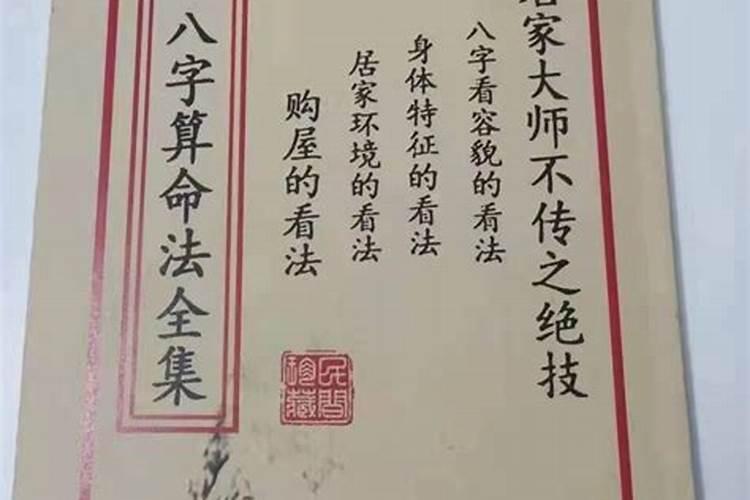 家大师不传之绝技
八字看容貌的看法
身体特征的看法
居家环境的看法
购屋的看法
民間
珍藏
八字算命法全集